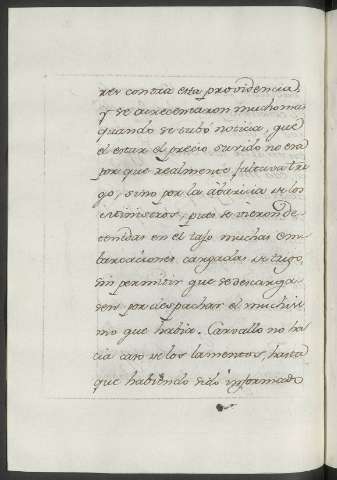 res contra esta providencia,
y se acrecentaron mucho mas
quando se tubo noticia, que
el estar el precio subido no era
por que realmente faltava tri
go, sino por la abaricia de los
Ministros, pues se vieron de
tenidas en el tajo muchas em
barcaciones cargadas de trigo,
sin permitir que se descarga
sen por despachar el muchisi
mo que había. Carvallo no ha
cia caso de los lamentos, hasta
que habiendo sido informado